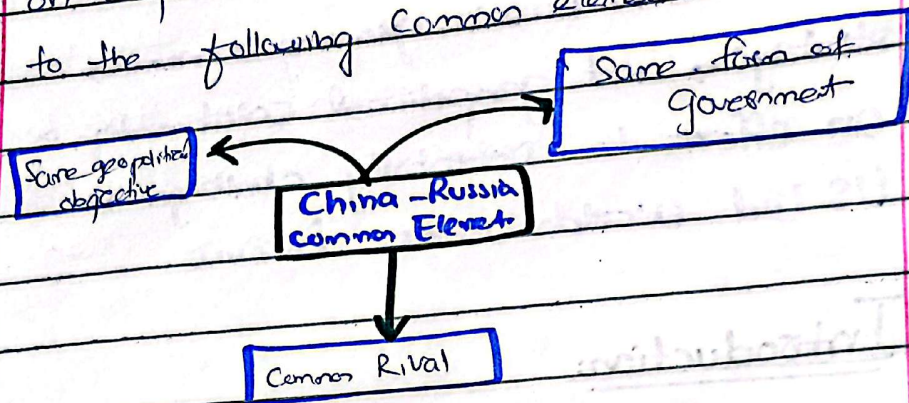 to the following Common
Same form of
government
Same geopolitical
objective
China - Russia
Common Element
Common Rival